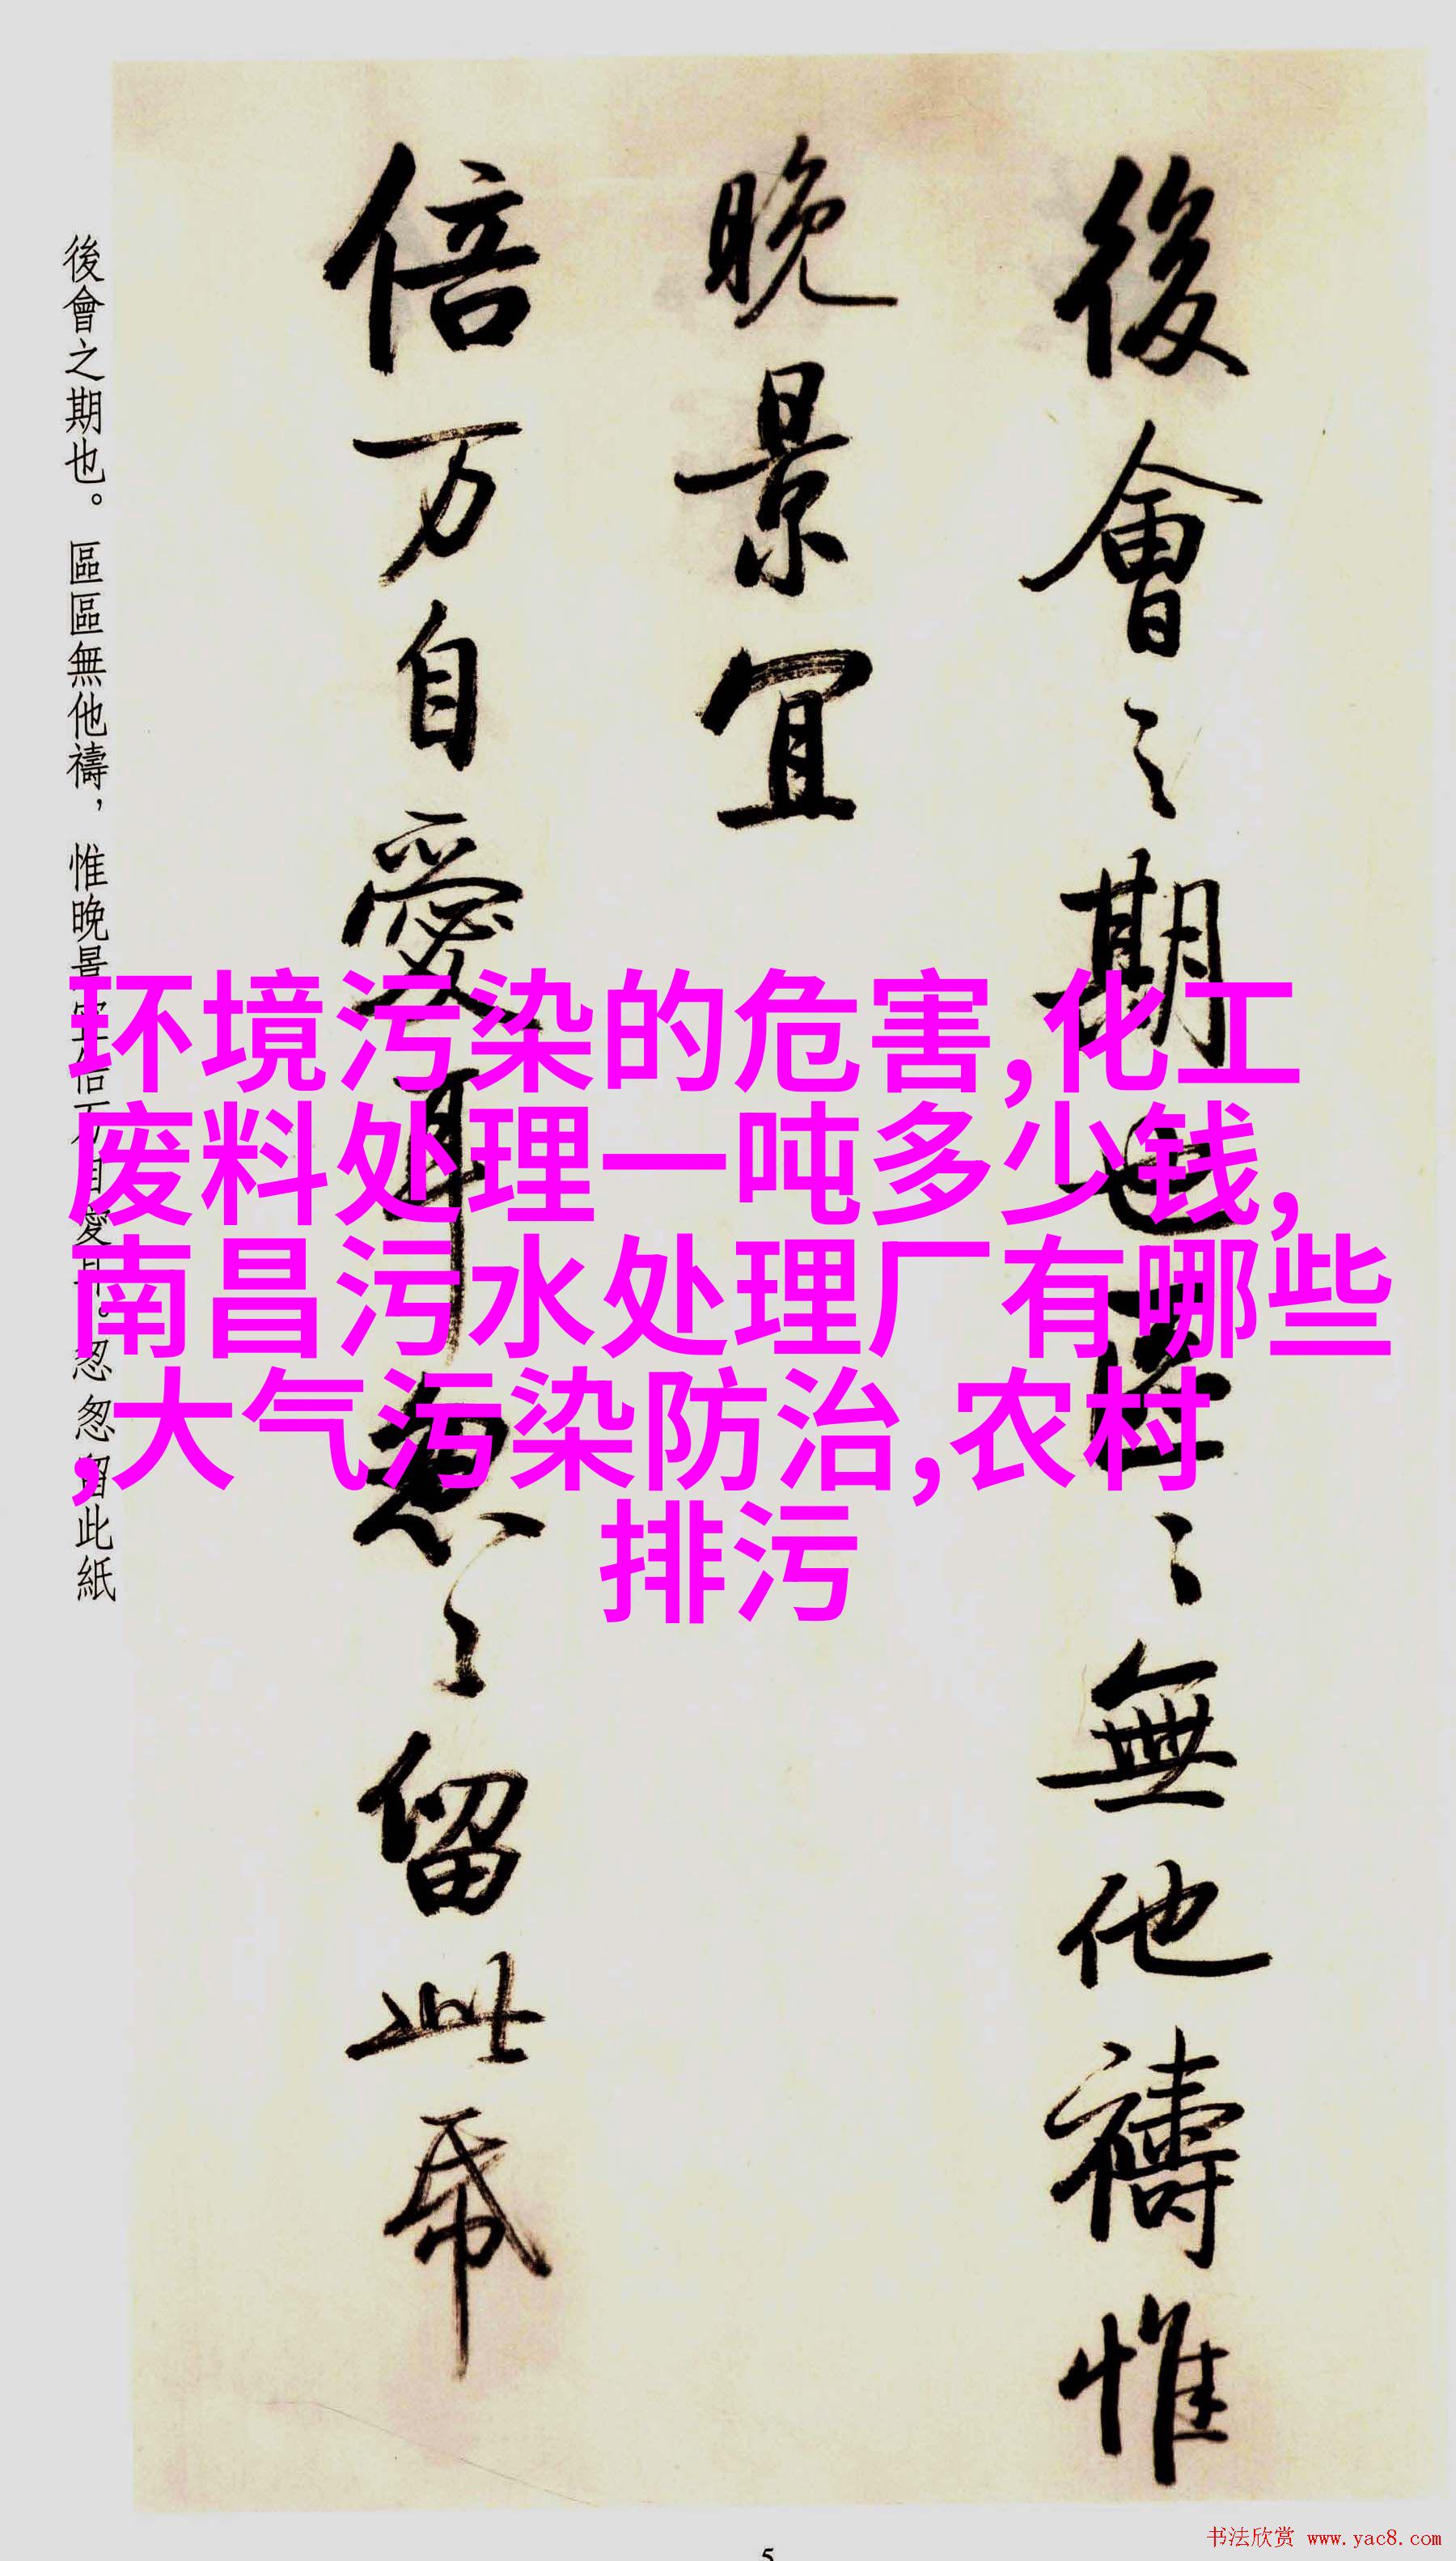 後會之期也區區無他禱惟
晚景宜
倍万自愛耳忽〻留此紙
後會之期也。區區無他禱，惟晚景宜倍万自愛耳。忽忽留此紙
环境污染的危害,化工
废料处理一吨多少钱,
南昌污水处理厂有哪些
,大气污染防治,农村
排污
书法欣赏 www.yac8.com
5